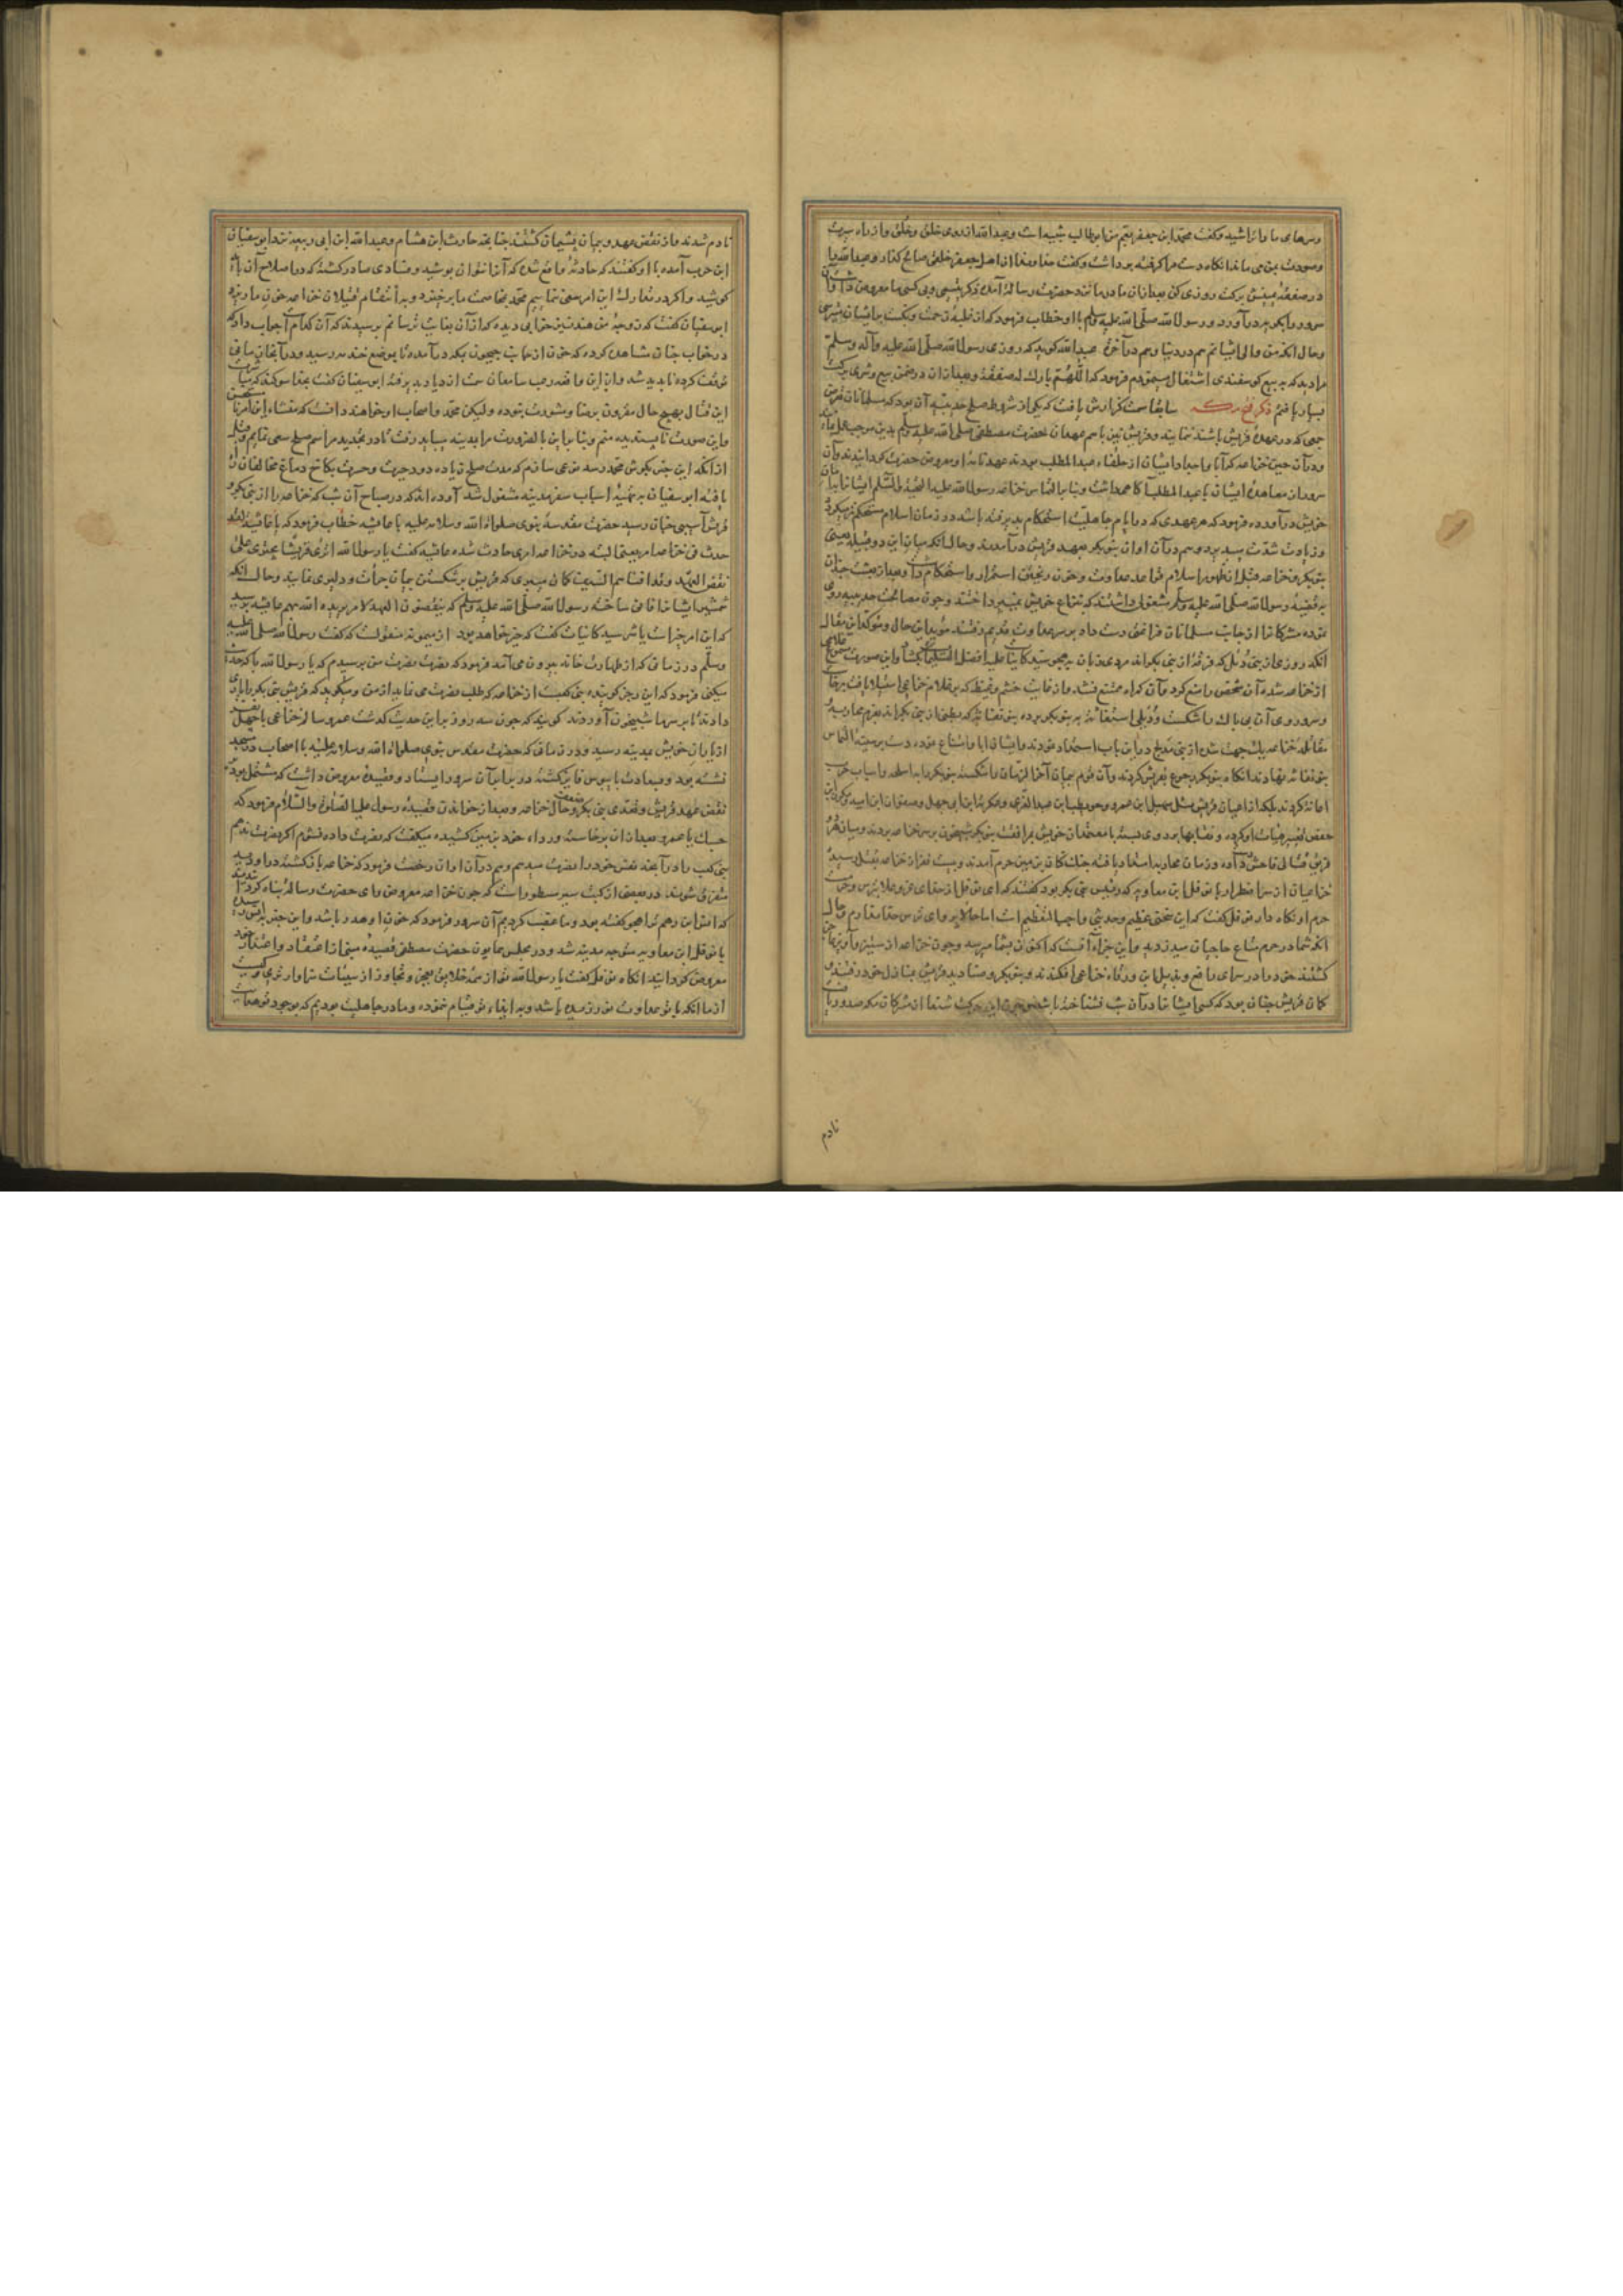 وسرهای ما را تراشید و گفت محمد ابن جعفر بعم من ابو طالب شبیه است و عبد الله از روی خلق و خلق و از راه سیرت
وصورت بمن می ماند انگاه دست مرا گرفته برداشت و گفت خداوندا از اهل جعفر خلفی صالح گذار و عبد الله را
در صفقهٔ یمینش برکت روزی کن بعد ازان مادر ما نزد حضرت رسالة آمده ذکر یتیمی و بی کسی ما معروض داشت آن
سرور را بگریه درآورد و رسول الله صلّی الله علیه وسلم با او خطاب فرمود که از غلبهٔ زحمت و نکبت بر ایشان می ترسی
وحال آنکه من والی ایشانم هم در دنیا وهم در آخرة عبد الله گوید که روزی رسول الله صلّی الله علیه وآله وسلّم
مرا دید که به بیع گوسفندی اشتغال مینمودم فرمود که اللّهمّ بارك له صفقتهٔ و بعد ازان در ضمن بیع وشری برکت
بسیار یافتم ذکر فتح مکه سابقا سمت گزارش یافت که یکی از شروط صلح حدیبیه آن بود که مسلمانان متعرض
جمعی که در عهد قریش باشند ننمایند و قریش نیز با هم عهدان حضرت مصطفی صلی الله علیه وسلّم بدین موجب عمل نمایند
ودر آن حین خزاعه که آبا و اجداد ایشان از حلفاء عبد المطلب بودند عهدنامهٔ او معروض حضرت گردانیدند و آن
سرور از معاهدهٔ ایشان با عبد المطلب آگاهی داشت و بنا بر التماس خزاعه رسول الله علیه التحیة والسّلم ایشان را بامان
خویش درآورده فرمود که هر عهدی که در ایام جاهلیّت استحکام پذیرفته باشد در زمان اسلام مستحکم تر میگردد
وزیادت شدّت می پذیرد وهم در آن اوان بنو بکر بعهد قریش درآمدند وحال آنکه میان این دو قبیله یعنی
بنو بکر و خزاعه قبل از ظهور اسلام قواعد معاوت و خون ریختن استمرار و استحکام داشت و بعد از بعثت چنان
به قضیهٔ رسول الله صلّی الله علیه وسلّم مشغول داشتند که بنزاع خویش نمیپرداختند و چون مصالحت حدیبیه روی
نمود مشرکان را از جانب مسلمانان فراغتی دست داد بر سر عداوت قدیم رفتند مؤید این حال و مؤکد این مقال
آنکه روزی از بنی دئل که فرقهٔ از بنی بکر اند مردی زبان بهجو سید کائنات علیه افضل التسلیمات بگشاد و این صورت مسموع غلامی
از خزاعه شده آن شخص را منع کرد و آن گمراه ممتنع نشد و از غایت خشم و غیظ که بر غلام خزاعی استیلا یافت برخاست
وسر و روی آن بی باك را شکست و دئلی استغاثه به بنو بکر برده بنو نفاثه که بطنی از بنی بکر اند بعزم محاربه و
مقاتله خزاعه یك جهت شده از بنی مدلج درین باب استمداد نمودند و ایشان ابا و امتناع نموده دست بر سینهٔ التماس
بنو نفاثه نهادند انگاه بنو بکر رجوع بقریش کردند و آن قوم پیمان آخر الزمان را شکسته بنو بکر را باسلحه و اسباب حرب
اعانه کردند بلکه از اعیان قریش مثل سهیل ابن عمرو و حویطب ابن عبد العزی و عکرمة ابن ابی جهل و صفوان ابن امیه و مکرز ابن
حفص تغییر هیأت کرده و نقابها بر روی بسته با معتمدان خویش بمرافقت بنو بکر شبیخون بر سر خزاعه بردند و میان هردو
فریق قتالی فاحش دست داده و زمان محاربه امتداد یافته جنك کنان بزمین حرم آمدند و بیست نفر از خزاعه بقتل رسید
خزاعیان از سر اضطرار با نوفل ابن معاویه که رئیس بنی بکر بود گفتند که ای نوفل از خدای عز وعلا بترس وحرمت
حرم او نگاه دار نوفل گفت که این سخنی عظیم وحدیثی واجب التعظیم است اما حالا پروای ترس خدا ندارم وحال
آنکه شما در حرم متاع حاجیان میدزدید و این جزاء آنست که اکنون بشما میرسد و چون خزاعه از ستیز و آویز عاجز
گشتند خود را در سرای رافع و بدیل ابن ورقاء خزاعی افکندند و بنو بکر و صنادید قریش بمنازل خود رفتند و
گمان قریش چنان بود که کسی ایشانرا در آن شب نشناخته باشد و چون این حرکت شنعا از مشرکان مکه صدور یافت
نادم
نادم شدند و از نقض عهد و پیمان پشیمان گشتند چنانچه حارث ابن هشام و عبد الله ابن ابی ربیعه نزد ابو سفیان
ابن حرب آمده با او گفتند که حادثهٔ واقع شده که آنرا نتوان پوشید و فسادی صادر گشته که در اصلاح آن باید
کوشید و اگر در تدارك این امر سعی ننماییم محمّد بخاصمت ما برخیزد و بر انتقام قتیلان خزاعه خون ما ریزد
ابو سفیان گفت که زوجهٔ من هند نیز خوابی دیده که از آن بغایت ترسانم پرسیدند که آن کدام است جواب داد که
در خواب چنان مشاهده کرده که خون از جانب حجون بمکه درآمده تا بموضع خندمه رسید و در آنجا زمانی
توقف کرده ناپدید شد و از این واقعه رعب سامعان سمت ازدیاد پذیرفته ابو سفیان گفت بخدا سوگند که نیت
این قتال بهیچ حال مقرون برضا و مشورت من نبوده ولیکن محمد و اصحاب او خواهند دانست که منشاء این امر نا مستحسن
و این صورت ناپسندیده منم و بنا براین بالضرورت مرا بمدینه بباید رفت تا در تجدید مراسم صلح سعی نمایم و قبل
از آنکه این خبر بگوش محمّد رسد من می سازم که مدت صلح زیاده رود وحرب ونکایت دماغ مخالفان را
یافته ابو سفیان به تهیهٔ اسباب سفر مدینه مشغول شد آورده اند که در صباح آن شب که خزاعه را از بنی بکر و
قریش آسیبی چنان رسید حضرت مقدسهٔ نبوی صلواة الله وسلامه علیه با عایشه خطاب فرمود که یا عایشه لقد
حدث فی خزاعة امر یعنی البته در خزاعه امری حادث شده عایشه گفت یا رسول الله اتری قریشا یجترئ علی
نقض العهد و قد افناهم السیف گمان میبری که قریش بر شکستن پیمان جرأت و دلیری نمایند وحال آنکه
شمشیر ایشانرا فانی ساخته رسول الله صلّی الله علیه وسلّم که ینقضون العهد لامر یرید الله بهم عایشه پرسید
که این امر خیر است یا شر سید کائنات گفت که خیر خواهد بود از میمونه منقولست که گفت رسول الله صلی الله علیه
وسلّم در زمانی که از طهارت خانه بیرون می آمد فرمود که نصرت نصرت من پرسیدم که یا رسول الله با که حدیث
میکنی فرمود که این رجز گوینده بنی کعب از خزاعه که طلب نصرت می نماید از من و میگوید که قریش بنی بکر را یاری
دادند تا بر سر ما شبیخون آوردند گویند که چون سه روز بر این حدیث گذشت عمرو سالم خزاعی با چهل
از یاران خویش بمدینه رسید و در زمانی که حضرت مقدس نبوی صلواة الله وسلامه علیه با اصحاب در مسجد
نشسته بود و بسعادت پای بوس فایز گشته در برابر آن سرور ایستاد و قصیدهٔ معروض داشت که مشتمل بود بر
نقض عهد قریش و تعدی بنی بکر و ضعف حال خزاعه و بعد از خواندن قصیده رسول علیه الصلوة والسّلام فرمود که
حسبك یا عمرو و بعد ازان برخاسته ورداء خود بزمین کشیده میگفت که نصرت داده نشوم اگر نصرت ندهم
بنی کعب را در آنچه نفس خود را نصرت میدهم وهم در آن اوان رخصت فرمود که خزاعه باز گشته در اودیه
متفرق شوند در بعضی از کتب سیر مسطور است که چون خزاعه معروض رای حضرت رسالة پناه گردانیدند
که انس ابن زهیم ترا هجو گفته بود وما عقب کردیم آن سرور فرمود که خون او هدر باشد و این خبر بانس رسیده
با نوفل ابن معاویه متوجه مدینه شد و در مجلس همایون حضرت مصطفی قصیدهٔ مبنی از اعتقاد و اعتذار خود
معروض گردانید انگاه نوفل گفت یا رسول الله تو از همه خلایق بعفو و تجاوز از سیئات سزاوارتری و کیست
از ما آنکه با تو عداوت نورزیده باشد و به ایذاء تو قیام ننموده و ما در جاهلیت بودیم که بوجود تو هدایت